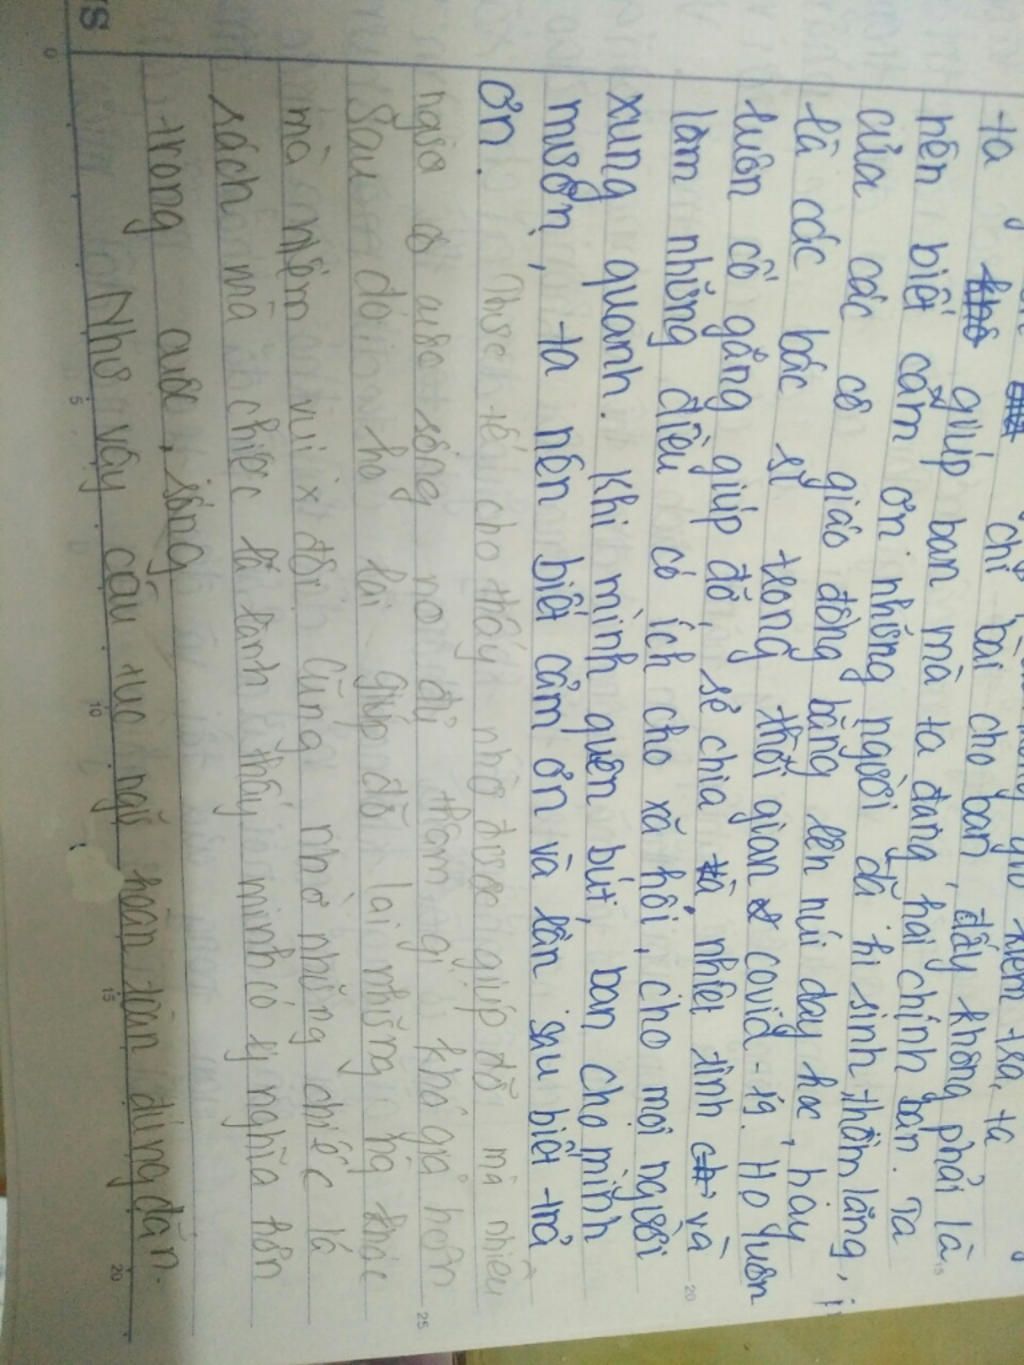 kiểm tra, ta
chỉ bài cho bạn đấy không phải là
ta giúp bạn mà ta đang hại chính bạn. Ta
nên biết cảm ơn những người đã hi sinh thầm lặng,
của các cô giáo đồng bằng lên núi dạy học, hay
là các bác sĩ trong thời gian covid-19. Họ luôn
luôn cố gắng giúp đỡ, sẻ chia, nhiệt tình và
làm những điều có ích cho xã hội, cho mọi người
xung quanh. Khi mình quên bút, bạn cho mình
mượn, ta nên biết cảm ơn và lần sau biết trả
ơn.
Thực tế cho thấy nhờ được giúp đỡ mà nhiều
người có cuộc sống no đủ thêm gị khá giả hơn
Sau đó họ lại giúp đỡ lại những ng khác
mà niềm vui x đôi. Cũng nhờ những chiếc lá
rách mà chiếc lá lành thấy mình có ý nghĩa hơn
trong cuộc sống
Như vậy câu tục ngữ hoàn toàn đúng đắn.
TS
0
5
10
15
20
15
20
25